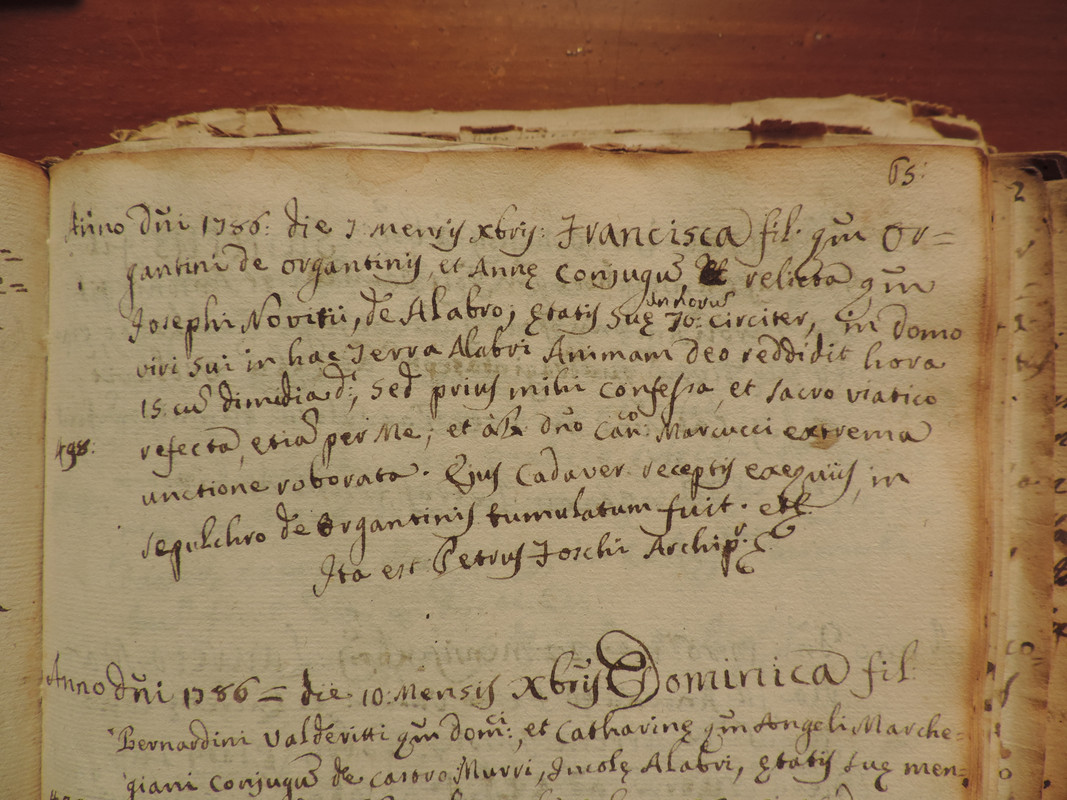 65:
Anno Dñi 1786: die 7 Mensis Xbris: Francisca fil. qm̃ Or=
gantini de Organtinis, et Annę Conjugũ, relicta qm̃
Josephi Novitii, de Alabro; ętatis Suę 70: annorũ circiter, in domo
viri Sui in hac Terra Alabri Animam Deo reddidit hora
15 cũ dimidia di; Sed prius mihi confessa, et sacro viatico
498. refecta, etiã per Me; et à Dño Can:co Marcucci extrema
unctione roborata. Ejus Cadaver receptis exequiis, in
sepulchro de Organtinis tumulatum fuit. etc
Ita est Petrus Foschi Archipr.
Anno Dñi 1786 = die 10 Mensis Xbris Dominica fil.
Bernardini Valderitti qm̃ Domci:, et Catharinę qm̃ Angeli Marche=
giani Conjugũ de Castro Murri, Incolę Alabri, ętatis Suę men=